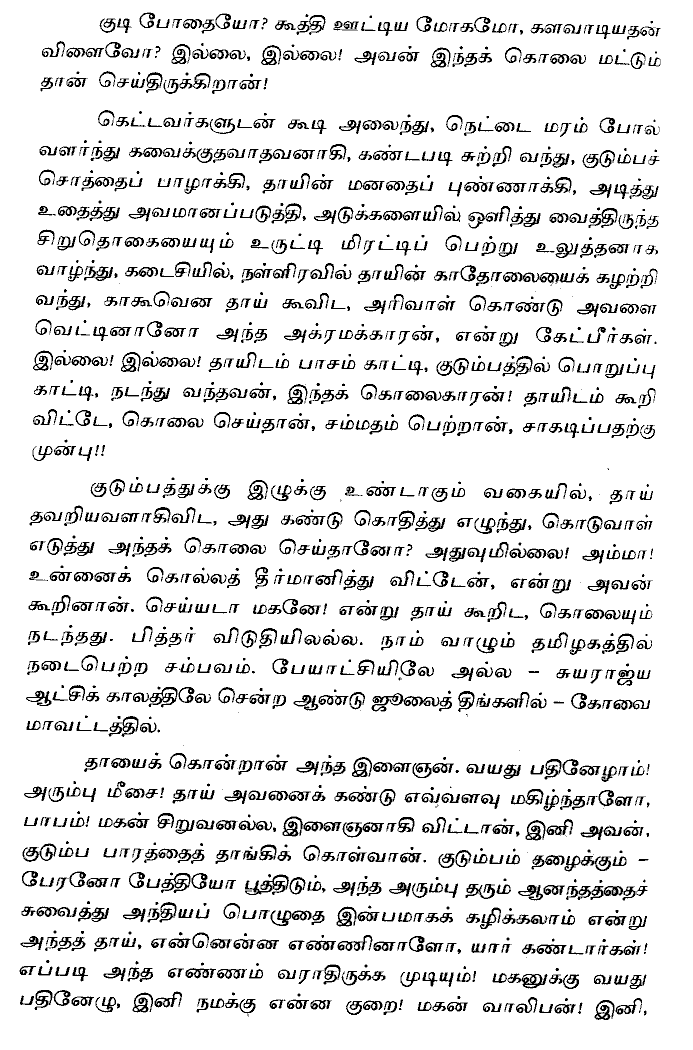 குடி போதையோ? கூத்தி ஊட்டிய மோகமோ, களவாடியதன்
விளைவோ? இல்லை, இல்லை! அவன் இந்தக் கொலை மட்டும்
தான் செய்திருக்கிறான்!
கெட்டவர்களுடன் கூடி அலைந்து, நெட்டை மரம் போல்
வளர்ந்து கவைக்குதவாதவனாகி, கண்டபடி சுற்றி வந்து, குடும்பச்
சொத்தைப் பாழாக்கி, தாயின் மனதைப் புண்ணாக்கி, அடித்து
உதைத்து அவமானப்படுத்தி, அடுக்களையில் ஒளித்து வைத்திருந்த
சிறுதொகையையும் உருட்டி மிரட்டிப் பெற்று உலுத்தனாக
வாழ்ந்து, கடைசியில், நள்ளிரவில் தாயின் காதோலையைக் கழற்றி
வந்து, காகூவென தாய் கூவிட, அரிவாள் கொண்டு அவளை
வெட்டினானோ அந்த அக்ரமக்காரன், என்று கேட்பீர்கள்.
இல்லை! இல்லை! தாயிடம் பாசம் காட்டி, குடும்பத்தில் பொறுப்பு
காட்டி, நடந்து வந்தவன், இந்தக் கொலைகாரன்! தாயிடம் கூறி
விட்டே, கொலை செய்தான், சம்மதம் பெற்றான், சாகடிப்பதற்கு
முன்பு!!
குடும்பத்துக்கு இழுக்கு உண்டாகும் வகையில், தாய்
தவறியவளாகிவிட, அது கண்டு கொதித்து எழுந்து, கொடுவாள்
எடுத்து அந்தக் கொலை செய்தானோ? அதுவுமில்லை! அம்மா!
உன்னைக் கொல்லத் தீர்மானித்து விட்டேன், என்று அவன்
கூறினான். செய்யடா மகனே! என்று தாய் கூறிட, கொலையும்
நடந்தது. பித்தர் விடுதியிலல்ல. நாம் வாழும் தமிழகத்தில்
நடைபெற்ற சம்பவம். பேயாட்சியிலே அல்ல – சுயராஜ்ய
ஆட்சிக் காலத்திலே சென்ற ஆண்டு ஜூலைத் திங்களில் – கோவை
மாவட்டத்தில்.
தாயைக் கொன்றான் அந்த இளைஞன். வயது பதினேழாம்!
அரும்பு மீசை! தாய் அவனைக் கண்டு எவ்வளவு மகிழ்ந்தாளோ,
பாபம்! மகன் சிறுவனல்ல, இளைஞனாகி விட்டான், இனி அவன்,
குடும்ப பாரத்தைத் தாங்கிக் கொள்வான். குடும்பம் தழைக்கும் –
பேரனோ பேத்தியோ பூத்திடும், அந்த அரும்பு தரும் ஆனந்தத்தைச்
சுவைத்து அந்தியப் பொழுதை இன்பமாகக் கழிக்கலாம் என்று
அந்தத் தாய், என்னென்ன எண்ணினாளோ, யார் கண்டார்கள்!
எப்படி அந்த எண்ணம் வராதிருக்க முடியும்! மகனுக்கு வயது
பதினேழு, இனி நமக்கு என்ன குறை! மகன் வாலிபன்! இனி,